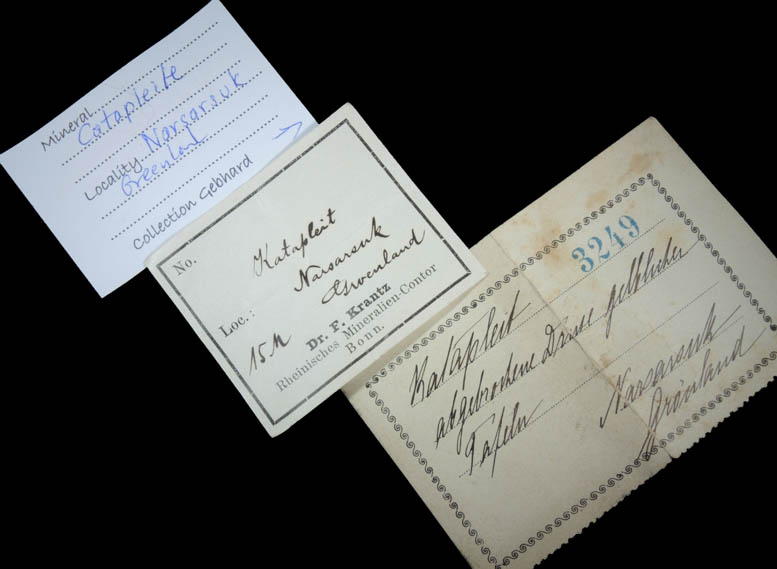 Mineral Catapleite
Locality Narsarsuk
Greenland
Collection Gebhard
No.
Katapleit
Narsarsuk
Groenland
Loc.:
15 M
Dr. F. Krantz
Rheinisches Mineralien-Contor
Bonn.
3249
Katapleit
abgebrochene Druse gelblicher
Tafeln
Narsarsuk
Grönland